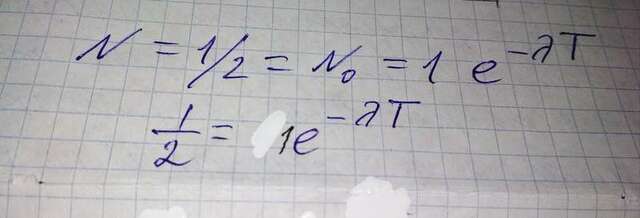 N = 1/2 = N₀ = 1 e^{-λT}
1/2 = 1e^{-λT}